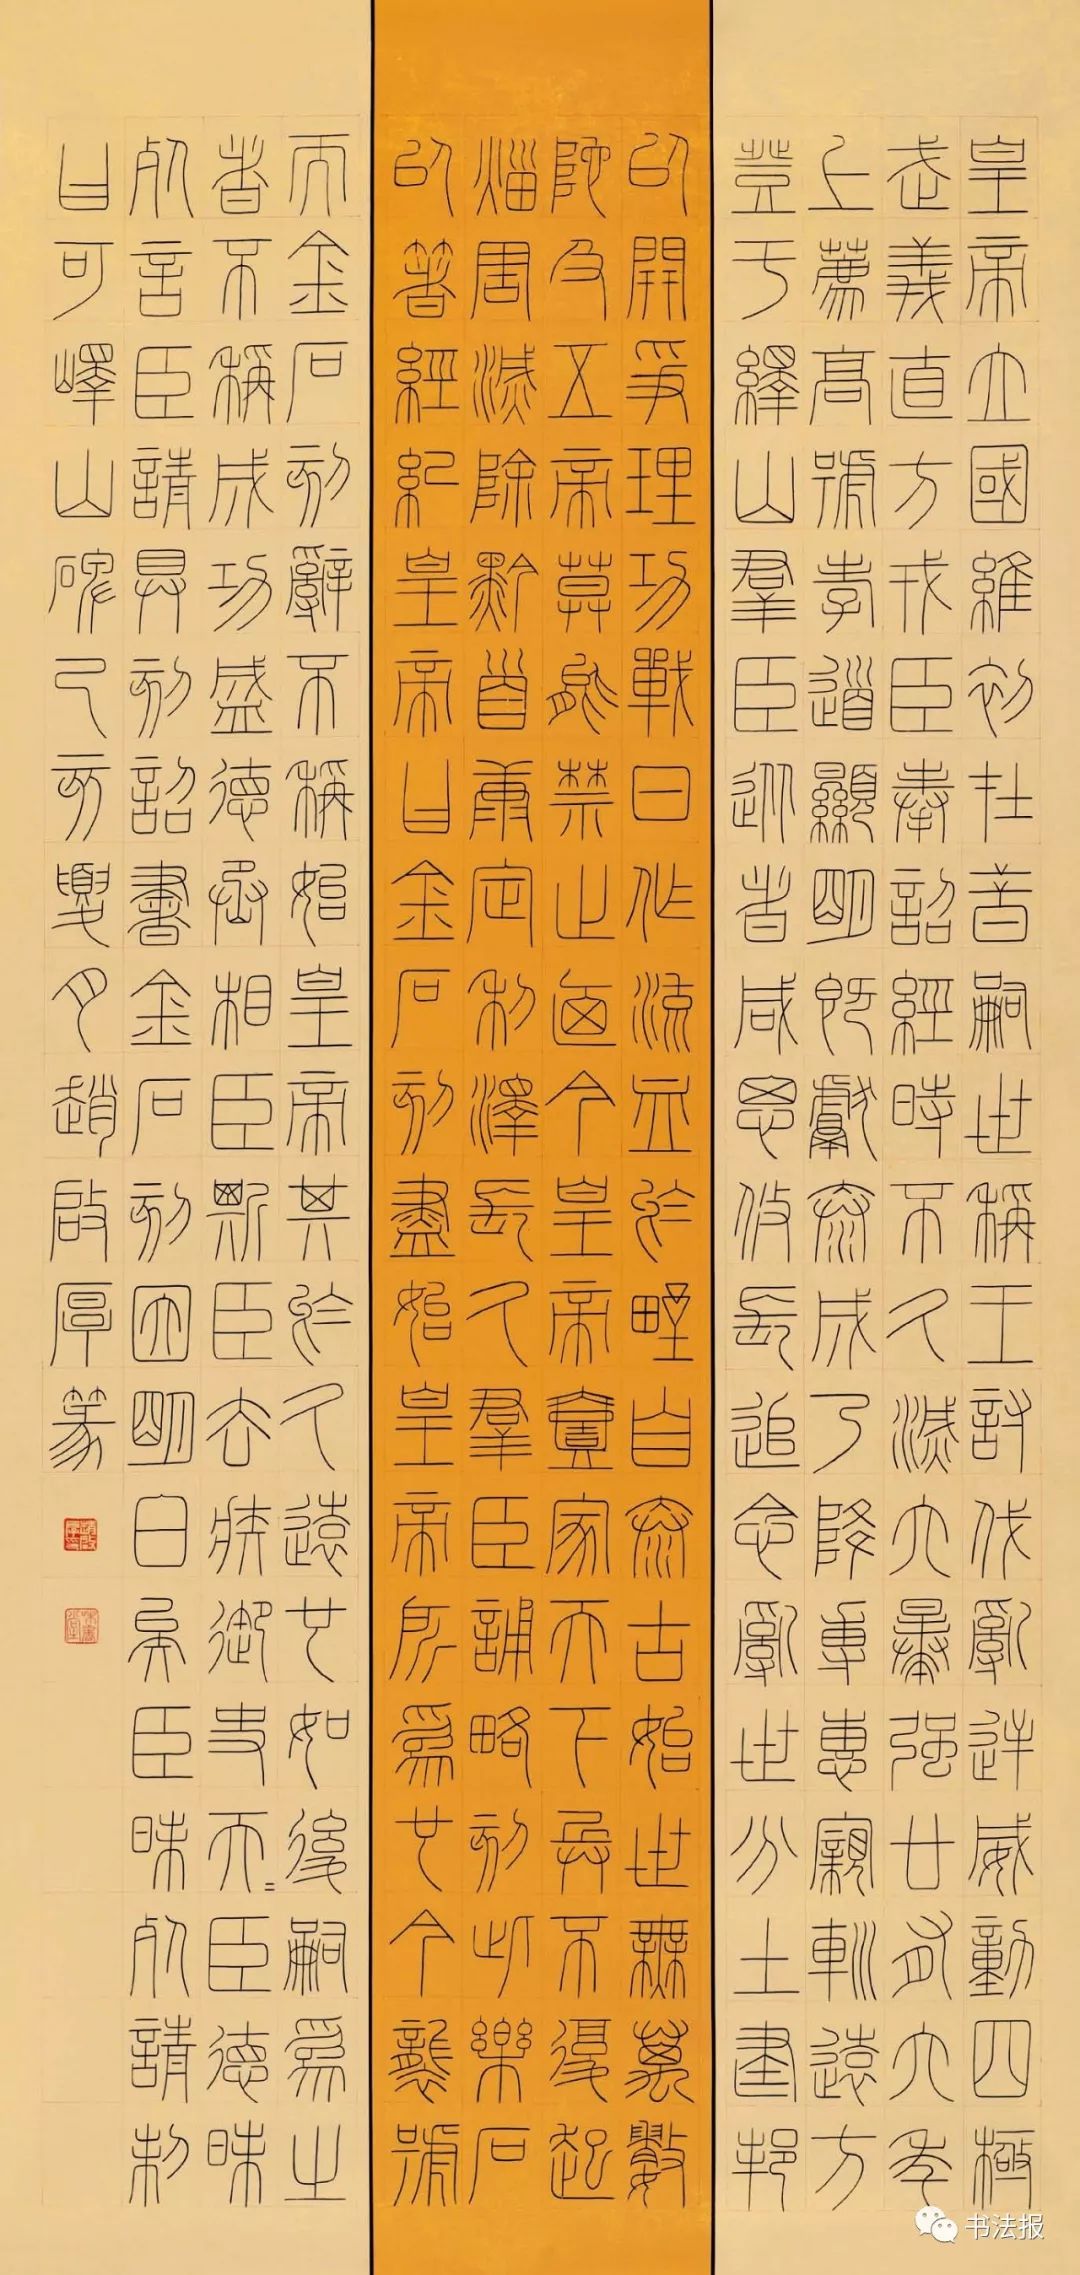 皇帝立國維初在昔嗣世稱王討伐亂逆威動四極
武義直方戎臣奉詔經時不久滅六暴強廿有六年
上薦高號孝道顯明既獻泰成乃降專惠親巡遠方
登于繹山羣臣從者咸思攸長追念亂世分土建邦
以開爭理功戰日作流血於野自泰古始世無萬數
阤及五帝莫能禁止廼今皇帝壹家天下兵不復起
災害滅除黔首康定利澤長久羣臣誦略刻此樂石
以著經紀皇帝曰金石刻盡始皇帝所為也今襲號
而金石刻辭不稱始皇帝其於久遠也如後嗣為之
者不稱成功盛德丞相臣斯臣去疾御史夫=臣德昧
死言臣請具刻詔書金石刻因明白矣臣昧死請制
曰可嶧山碑己亥夏月趙啟厚篆
书法报